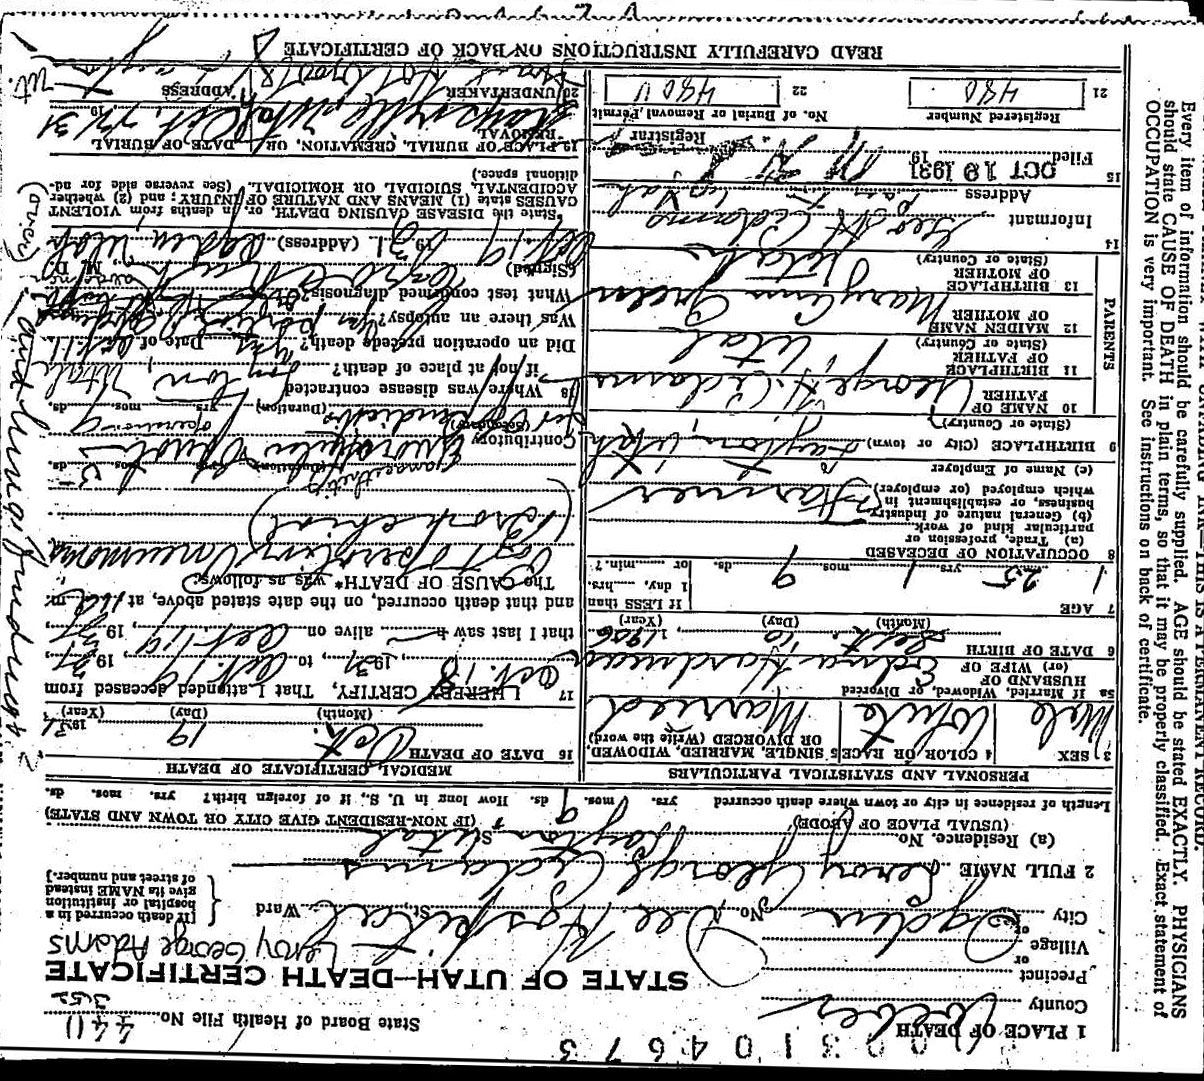 0 0 3 1 0 4 6 7 3
State Board of Health File No. 440
352
1 PLACE OF DEATH
County Weber
STATE OF UTAH—DEATH CERTIFICATE
Precinct
or
Village
Leroy George Adams
or
City Ogden No. Dee Hospital St., Ward
[If death occurred in a hospital or institution give its NAME instead of street and number.]
2 FULL NAME Leroy George Adams
(a) Residence. No. Layton Utah St.
(USUAL PLACE OF ABODE) (IF NON-RESIDENT GIVE CITY OR TOWN AND STATE)
Length of residence in city or town where death occurred yrs. mos. 9 ds. How long in U. S., if of foreign birth? yrs. mos. ds.
PERSONAL AND STATISTICAL PARTICULARS
3 SEX Male
4 COLOR OR RACE White
5 SINGLE, MARRIED, WIDOWED, OR DIVORCED (Write the word) Married
5a If Married, Widowed, or Divorced
HUSBAND OF
(or) WIFE OF Edna Hardman
6 DATE OF BIRTH Sept. 10, 1906
(Month) (Day) (Year)
7 AGE
25 yrs. 1 mos. 9 ds.
If LESS than 1 day, hrs. or min.?
8 OCCUPATION OF DECEASED
(a) Trade, profession or particular kind of work
(b) General nature of industry, business, or establishment in which employed (or employer) Farmer
(c) Name of Employer
9 BIRTHPLACE (City or town) Layton, Utah
(State or Country)
PARENTS
10 NAME OF FATHER George H. Adams
11 BIRTHPLACE OF FATHER Utah
(State or Country)
12 MAIDEN NAME OF MOTHER Mary Ann Green
13 BIRTHPLACE OF MOTHER Utah
(State or Country)
14 Informant Geo H Adams
Address Layton Utah
15 Filed OCT 19 1931 19
Registrar
21 Registered Number 480
22 No. of Burial or Removal Permit 480 U
MEDICAL CERTIFICATE OF DEATH
16 DATE OF DEATH Oct. 19 1931
(Month) (Day) (Year)
17 I HEREBY CERTIFY, That I attended deceased from
Oct. 18, 1931, to Oct. 19, 1931
that I last saw h alive on Oct 19, 1931
and that death occurred, on the date stated above, at m.
The CAUSE OF DEATH* was as follows:
Post Operative Pneumonia
(Bronchial)
(Duration) yrs. mos. 5 ds.
Contributory
(Secondary)
(Duration) yrs. mos. ds.
18 Where was disease contracted
if not at place of death? Layton, Utah
Did an operation precede death? yes Date of Oct 11
Was there an autopsy? yes
What test confirmed diagnosis?
(Signed) M. D.
Oct 19 1931 (Address) Ogden Utah
*State the DISEASE CAUSING DEATH, or, in deaths from VIOLENT CAUSES state (1) MEANS AND NATURE OF INJURY; and (2) whether ACCIDENTAL, SUICIDAL OR HOMICIDAL. (See reverse side for additional space.)
19 PLACE OF BURIAL, CREMATION, OR REMOVAL Kaysville Utah
DATE OF BURIAL Oct. 22, 1931
20 UNDERTAKER
ADDRESS Layton Ut.
READ CAREFULLY INSTRUCTIONS ON BACK OF CERTIFICATE
(over)
Every item of information should be carefully supplied. AGE should be stated EXACTLY. PHYSICIANS
should state CAUSE OF DEATH in plain terms, so that it may be properly classified. Exact statement of
OCCUPATION is very important. See instructions on back of certificate.